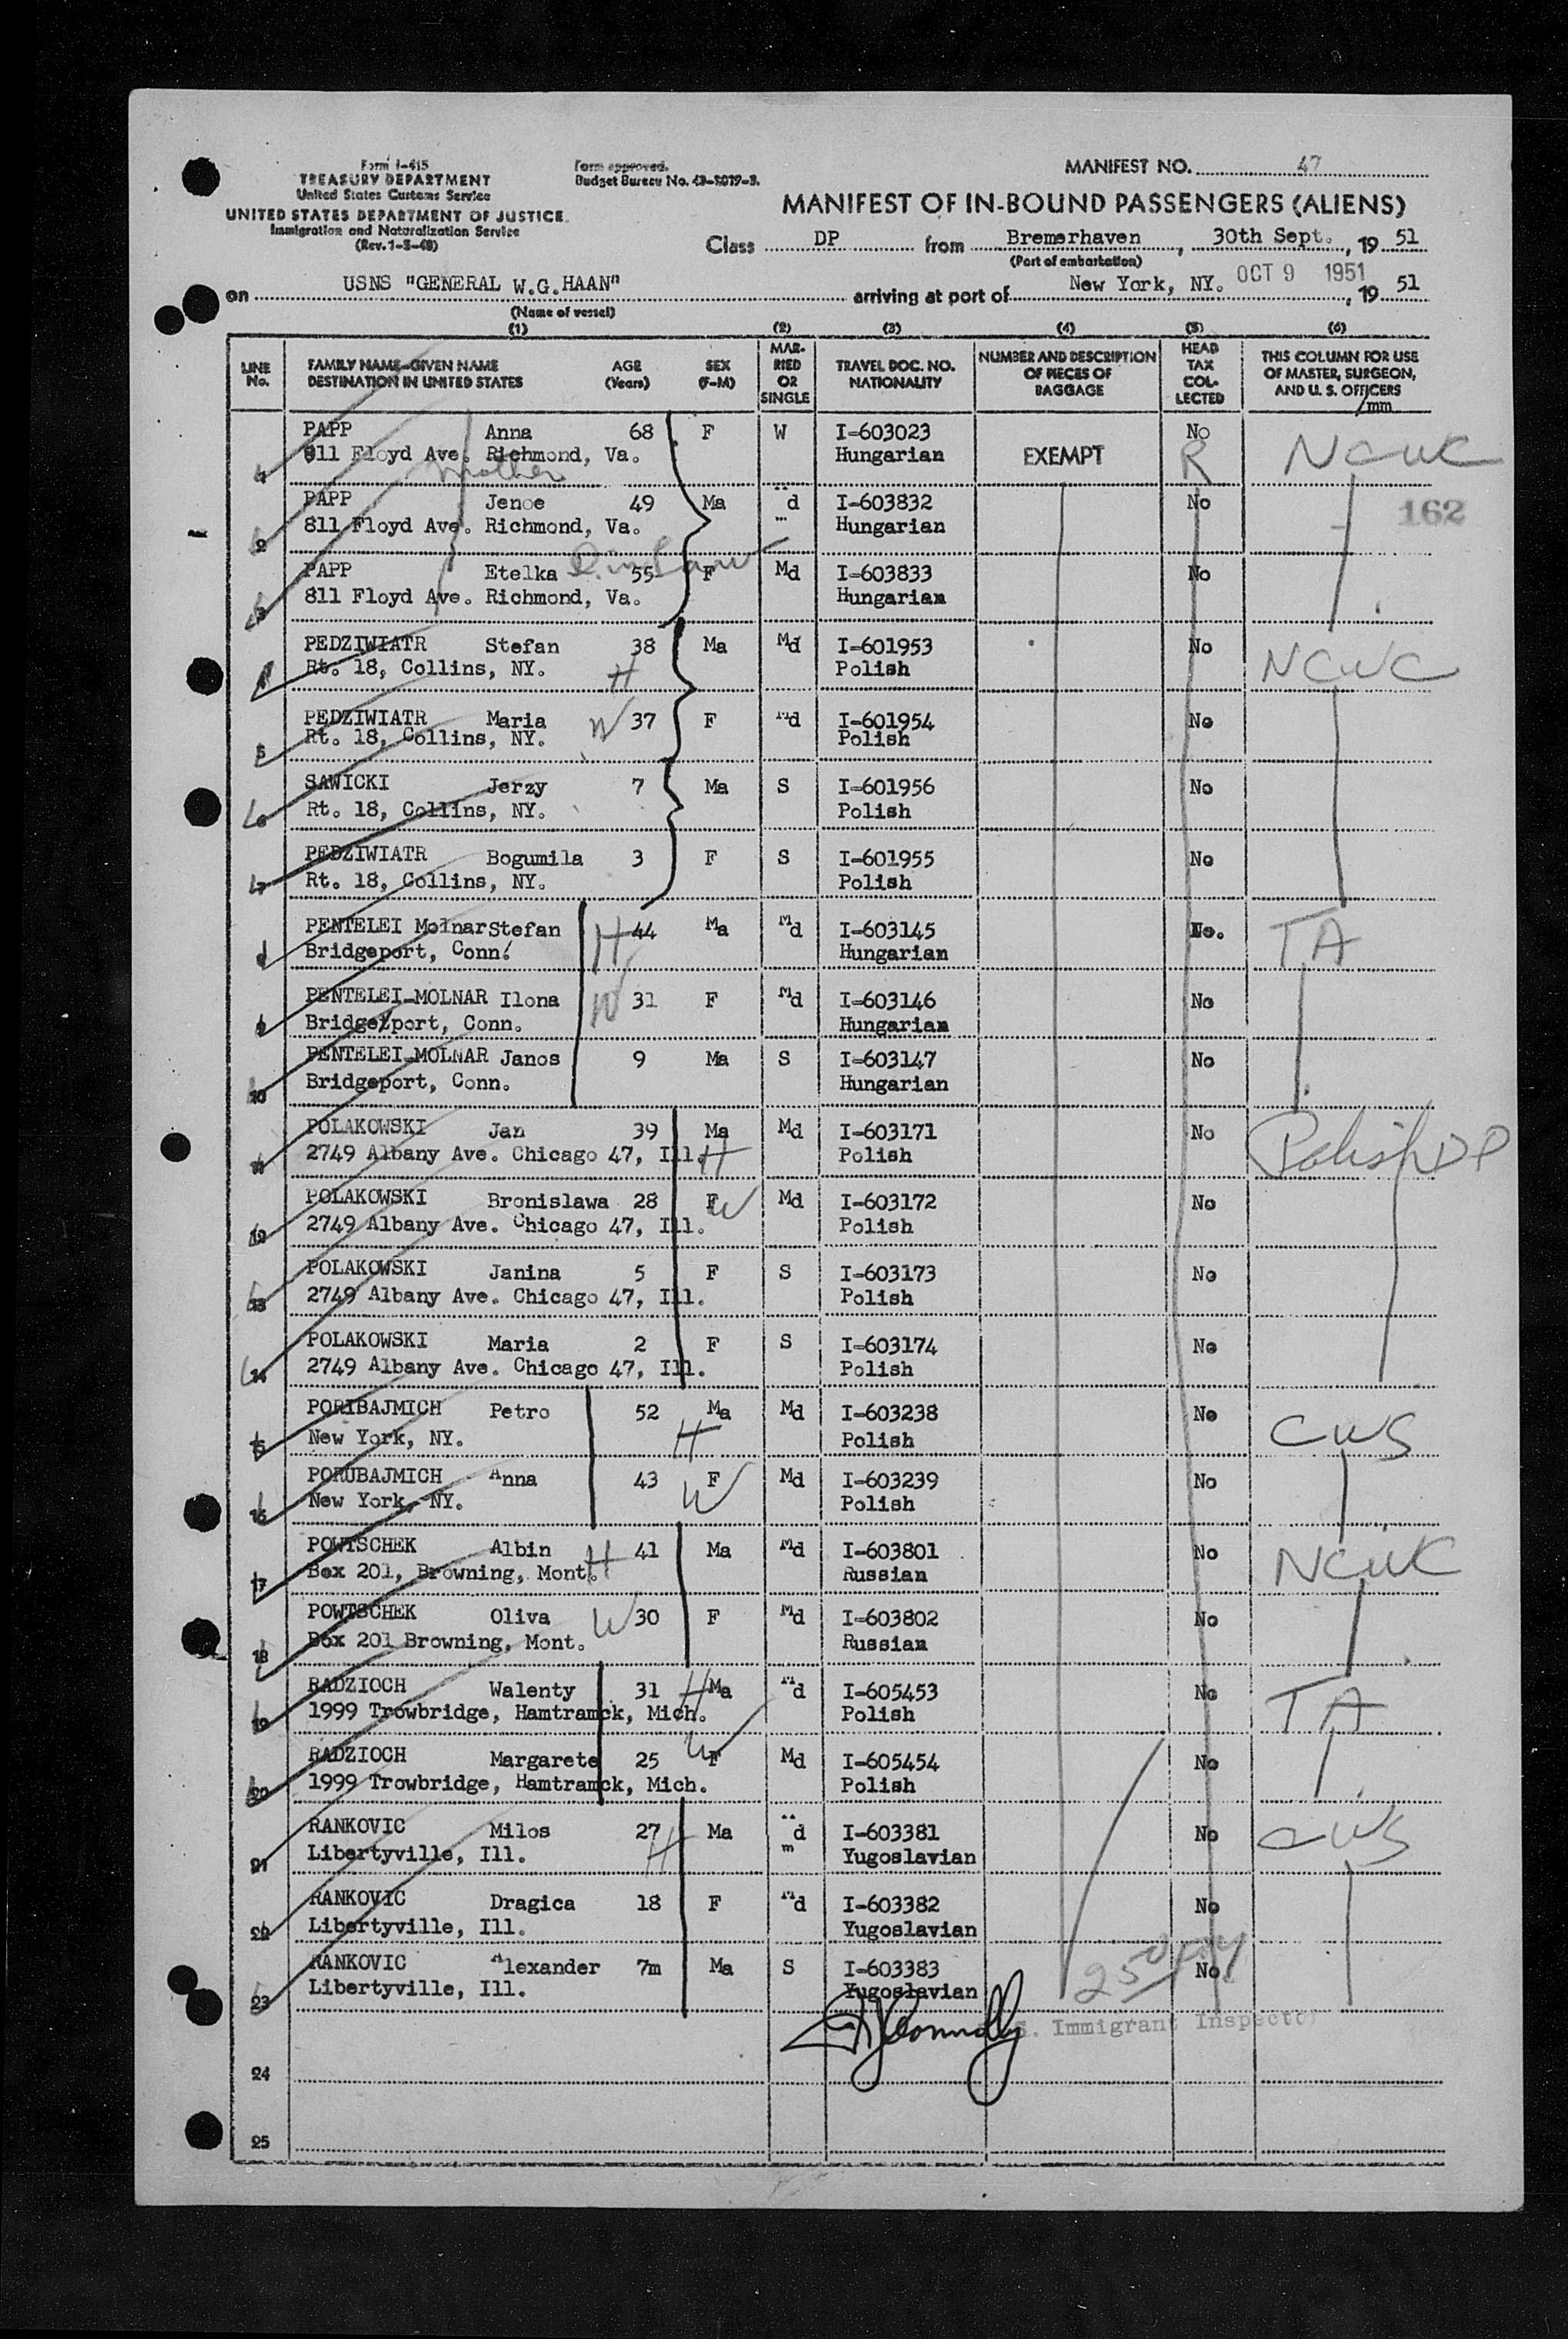 Form I-415
TREASURY DEPARTMENT
United States Customs Service
UNITED STATES DEPARTMENT OF JUSTICE
Immigration and Naturalization Service
(Rev. 1-3-49)
Form approved.
Budget Bureau No. 43-R019-3.
MANIFEST NO. 47
MANIFEST OF IN-BOUND PASSENGERS (ALIENS)
Class DP from Bremerhaven, 30th Sept., 19 51
(Port of embarkation)
on USNS "GENERAL W.G.HAAN" arriving at port of New York, NY. OCT 9 1951, 19 51
(Name of vessel)
(1) (2) (3) (4) (5) (6)
LINE No. FAMILY NAME-GIVEN NAME DESTINATION IN UNITED STATES AGE (Years) SEX (F-M) MARRIED OR SINGLE TRAVEL DOC. NO. NATIONALITY NUMBER AND DESCRIPTION OF PIECES OF BAGGAGE HEAD TAX COLLECTED THIS COLUMN FOR USE OF MASTER, SURGEON, AND U. S. OFFICERS
mm
1 PAPP Anna 68 F W I-603023 No
811 Floyd Ave. Richmond, Va. Hungarian EXEMPT R NCWC
mother
2 PAPP Jenoe 49 Ma d I-603832 No 162
811 Floyd Ave. Richmond, Va. Hungarian
D. in Law
3 PAPP Etelka 55 F Md I-603833 No
811 Floyd Ave. Richmond, Va. Hungarian
4 PEDZIWIATR Stefan 38 Ma Md I-601953 No NCWC
Rt. 18, Collins, NY. H Polish
5 PEDZIWIATR Maria W 37 F Md I-601954 No
Rt. 18, Collins, NY. Polish
6 SAWICKI Jerzy 7 Ma S I-601956 No
Rt. 18, Collins, NY. Polish
7 PEDZIWIATR Bogumila 3 F S I-601955 No
Rt. 18, Collins, NY. Polish
8 PENTELEI Molnar Stefan H 44 Ma Md I-603145 No. TA
Bridgeport, Conn. Hungarian
9 PENTELEI-MOLNAR Ilona W 31 F Md I-603146 No
Bridgeport, Conn. Hungarian
10 PENTELEI-MOLNAR Janos 9 Ma S I-603147 No
Bridgeport, Conn. Hungarian
11 POLAKOWSKI Jan 39 Ma Md I-603171 No Polish DP
2749 Albany Ave. Chicago 47, Ill. H Polish
12 POLAKOWSKI Bronislawa 28 F W Md I-603172 No
2749 Albany Ave. Chicago 47, Ill. Polish
13 POLAKOWSKI Janina 5 F S I-603173 No
2749 Albany Ave. Chicago 47, Ill. Polish
14 POLAKOWSKI Maria 2 F S I-603174 No
2749 Albany Ave. Chicago 47, Ill. Polish
15 PORIBAJMICH Petro 52 Ma Md I-603238 No CWS
New York, NY. H Polish
16 PORUBAJMICH Anna 43 F Md I-603239 No
New York, NY. W Polish
17 POWTSCHEK Albin H 41 Ma Md I-603801 No NCWC
Box 201, Browning, Mont. Russian
18 POWTSCHEK Oliva W 30 F Md I-603802 No
Box 201 Browning, Mont. Russian
19 RADZIOCH Walenty 31 H Ma Md I-605453 No TA
1999 Trowbridge, Hamtramck, Mich. Polish
20 RADZIOCH Margarete 25 W F Md I-605454 No
1999 Trowbridge, Hamtramck, Mich. Polish
21 RANKOVIC Milos 27 Ma d I-603381 No CWS
Libertyville, Ill. H m Yugoslavian
22 RANKOVIC Dragica 18 F Md I-603382 No
Libertyville, Ill. Yugoslavian
23 RANKOVIC Alexander 7m Ma S I-603383 No
Libertyville, Ill. Yugoslavian
S. Immigrant Inspector
24
25